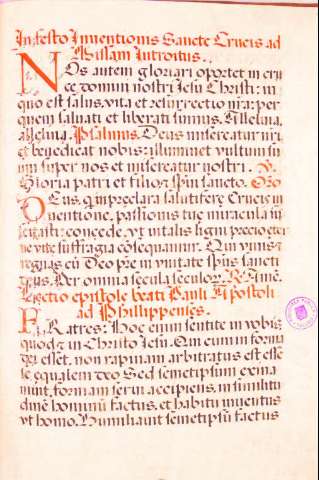 In festo Inventionis Sancte Crucis ad
Missam Introitus.
NOs autem gloriari oportet in cru
ce domini nostri Jesu Christi: in
quo est salus, vita et resurrectio nra: per
quem salvati et liberati sumus, Alleluia,
alleluia. Psalmus. Deus misereatur nri
et benedicat nobis: illuminet vultum su
um super nos et misereatur nostri. V.
Gloria patri et filio et spui sancto. Oro
DEus, qui in preclara salutifere Crucis in
ventione, passionis tue miracula su
scitasti: concede, vt vitalis ligni precio eter
ne vite suffragia cōsequamur. Qui vivis et
regnas cū Deo pre in vnitate spūs sancti
Deus. Per omnia secula seculor. R. Amē.
Lectio epistole beati Pauli Apostoli
ad Philippenses.
FRatres: Hoc enim sentite in vobis
quod et in Christo Jesu. Qui cum in forma
dei esset, non rapinam arbitratus est esse
se equalem deo Sed semetipsum exina
nivit, formam servi accipiens, in similitu
dinē hominū factus, et habitu inventus
vt homo. Humiliavit semetipsū factus